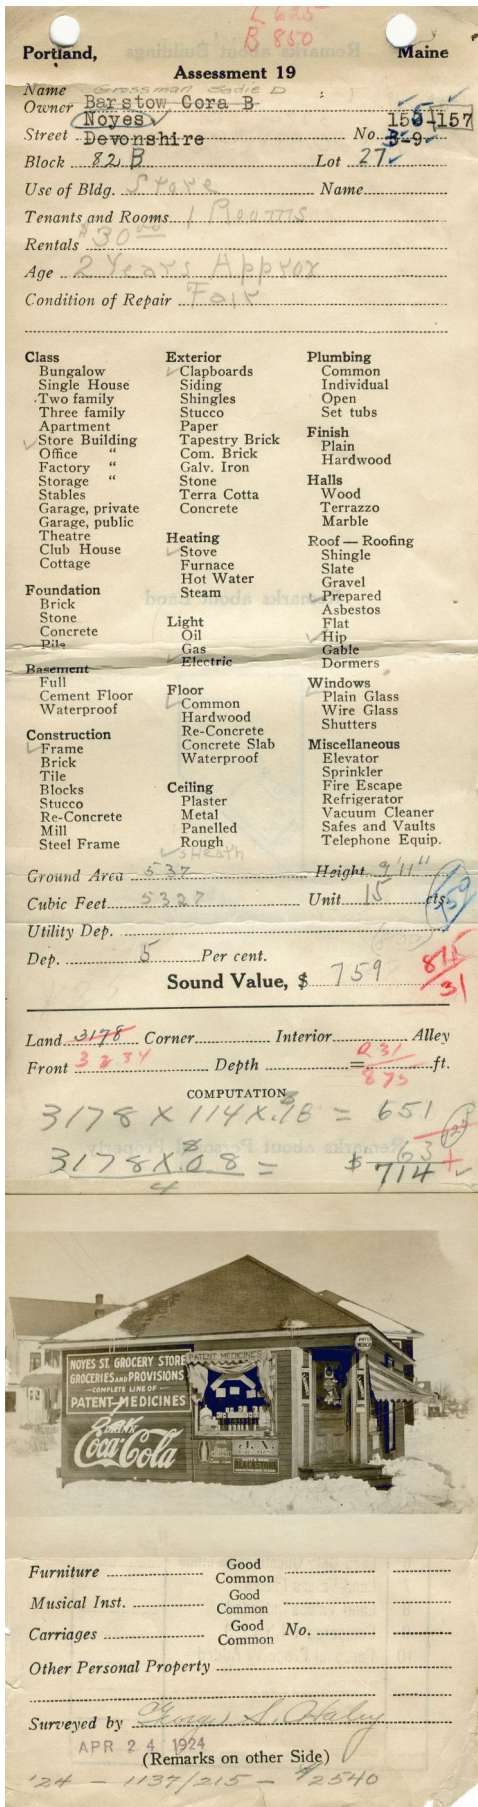 L 625
B 850
Portland, Maine
Assessment 19
Name Grossman Sadie D
Owner Barstow Cora B
Noyes 155-157
Street Devonshire No. 3-9
Block 82 B Lot 27
Use of Bldg. Store Name
Tenants and Rooms 1 Rooms
Rentals $30 00
Age 2 Years Approx
Condition of Repair Fair
Class
Bungalow
Single House
Two family
Three family
Apartment
Store Building
Office "
Factory "
Storage "
Stables
Garage, private
Garage, public
Theatre
Club House
Cottage
Foundation
Brick
Stone
Concrete
Pile
Basement
Full
Cement Floor
Waterproof
Construction
Frame
Brick
Tile
Blocks
Stucco
Re-Concrete
Mill
Steel Frame
Exterior
Clapboards
Siding
Shingles
Stucco
Paper
Tapestry Brick
Com. Brick
Galv. Iron
Stone
Terra Cotta
Concrete
Heating
Stove
Furnace
Hot Water
Steam
Light
Oil
Gas
Electric
Floor
Common
Hardwood
Re-Concrete
Concrete Slab
Waterproof
Ceiling
Plaster
Metal
Panelled
Rough
Sheath
Plumbing
Common
Individual
Open
Set tubs
Finish
Plain
Hardwood
Halls
Wood
Terrazzo
Marble
Roof — Roofing
Shingle
Slate
Gravel
Prepared
Asbestos
Flat
Hip
Gable
Dormers
Windows
Plain Glass
Wire Glass
Shutters
Miscellaneous
Elevator
Sprinkler
Fire Escape
Refrigerator
Vacuum Cleaner
Safes and Vaults
Telephone Equip.
Ground Area 537 Height 9'11"
Cubic Feet 5327 Unit 15 cts.
Utility Dep.
Dep. 5 Per cent.
Sound Value, $ 759
Land 3178 Corner Interior Alley
Front 3234 Depth = ft.
875
COMPUTATION
3178 X 114 X .18 = 651
63
3178 X .08 = $ 714
4
NOYES ST. GROCERY STORE
GROCERIES AND PROVISIONS
COMPLETE LINE OF
PATENT MEDICINES
DRINK
Coca-Cola
PATENT MEDICINES
Furniture Good Common
Musical Inst. Good Common
Carriages Good Common No.
Other Personal Property
Surveyed by George S. Haley
APR 24 1924
(Remarks on other Side)
'24 - 1137/215 - $2540